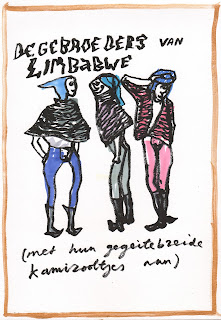 DE GEBROEDERS VAN
ZIMBABWE
(met hun gegeitebreide
kamizooltjes aan)